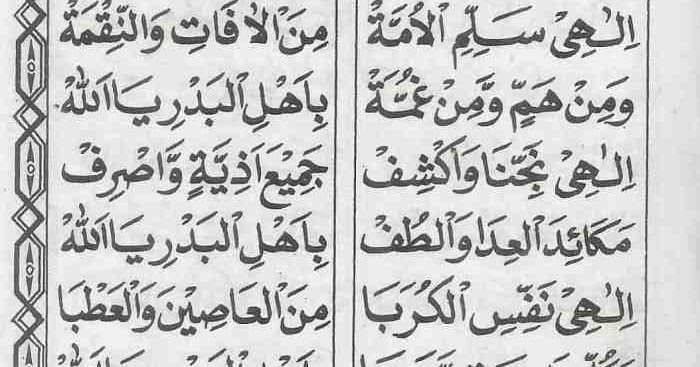 اِلٰهِيْ سَلِّمِ الْاُمَّةْ مِنَ الْاٰفَاتِ وَالنِّقْمَةْ
وَمِنْ هَمٍّ وَّمِنْ غُمَّةْ بِاَهْلِ الْبَدْرِ يَا اَللهْ
اِلٰهِيْ نَجِّنَا وَاكْشِفْ جَمِيْعَ اَذِيَّةٍ وَّاصْرِفْ
مَكَائِدَ الْعِدَا وَالْطُفْ بِاَهْلِ الْبَدْرِ يَا اَللهْ
اِلٰهِيْ نَفِّسِ الْكُرَبَا مِنَ الْعَاصِيْنَ وَالْعَطْبَا